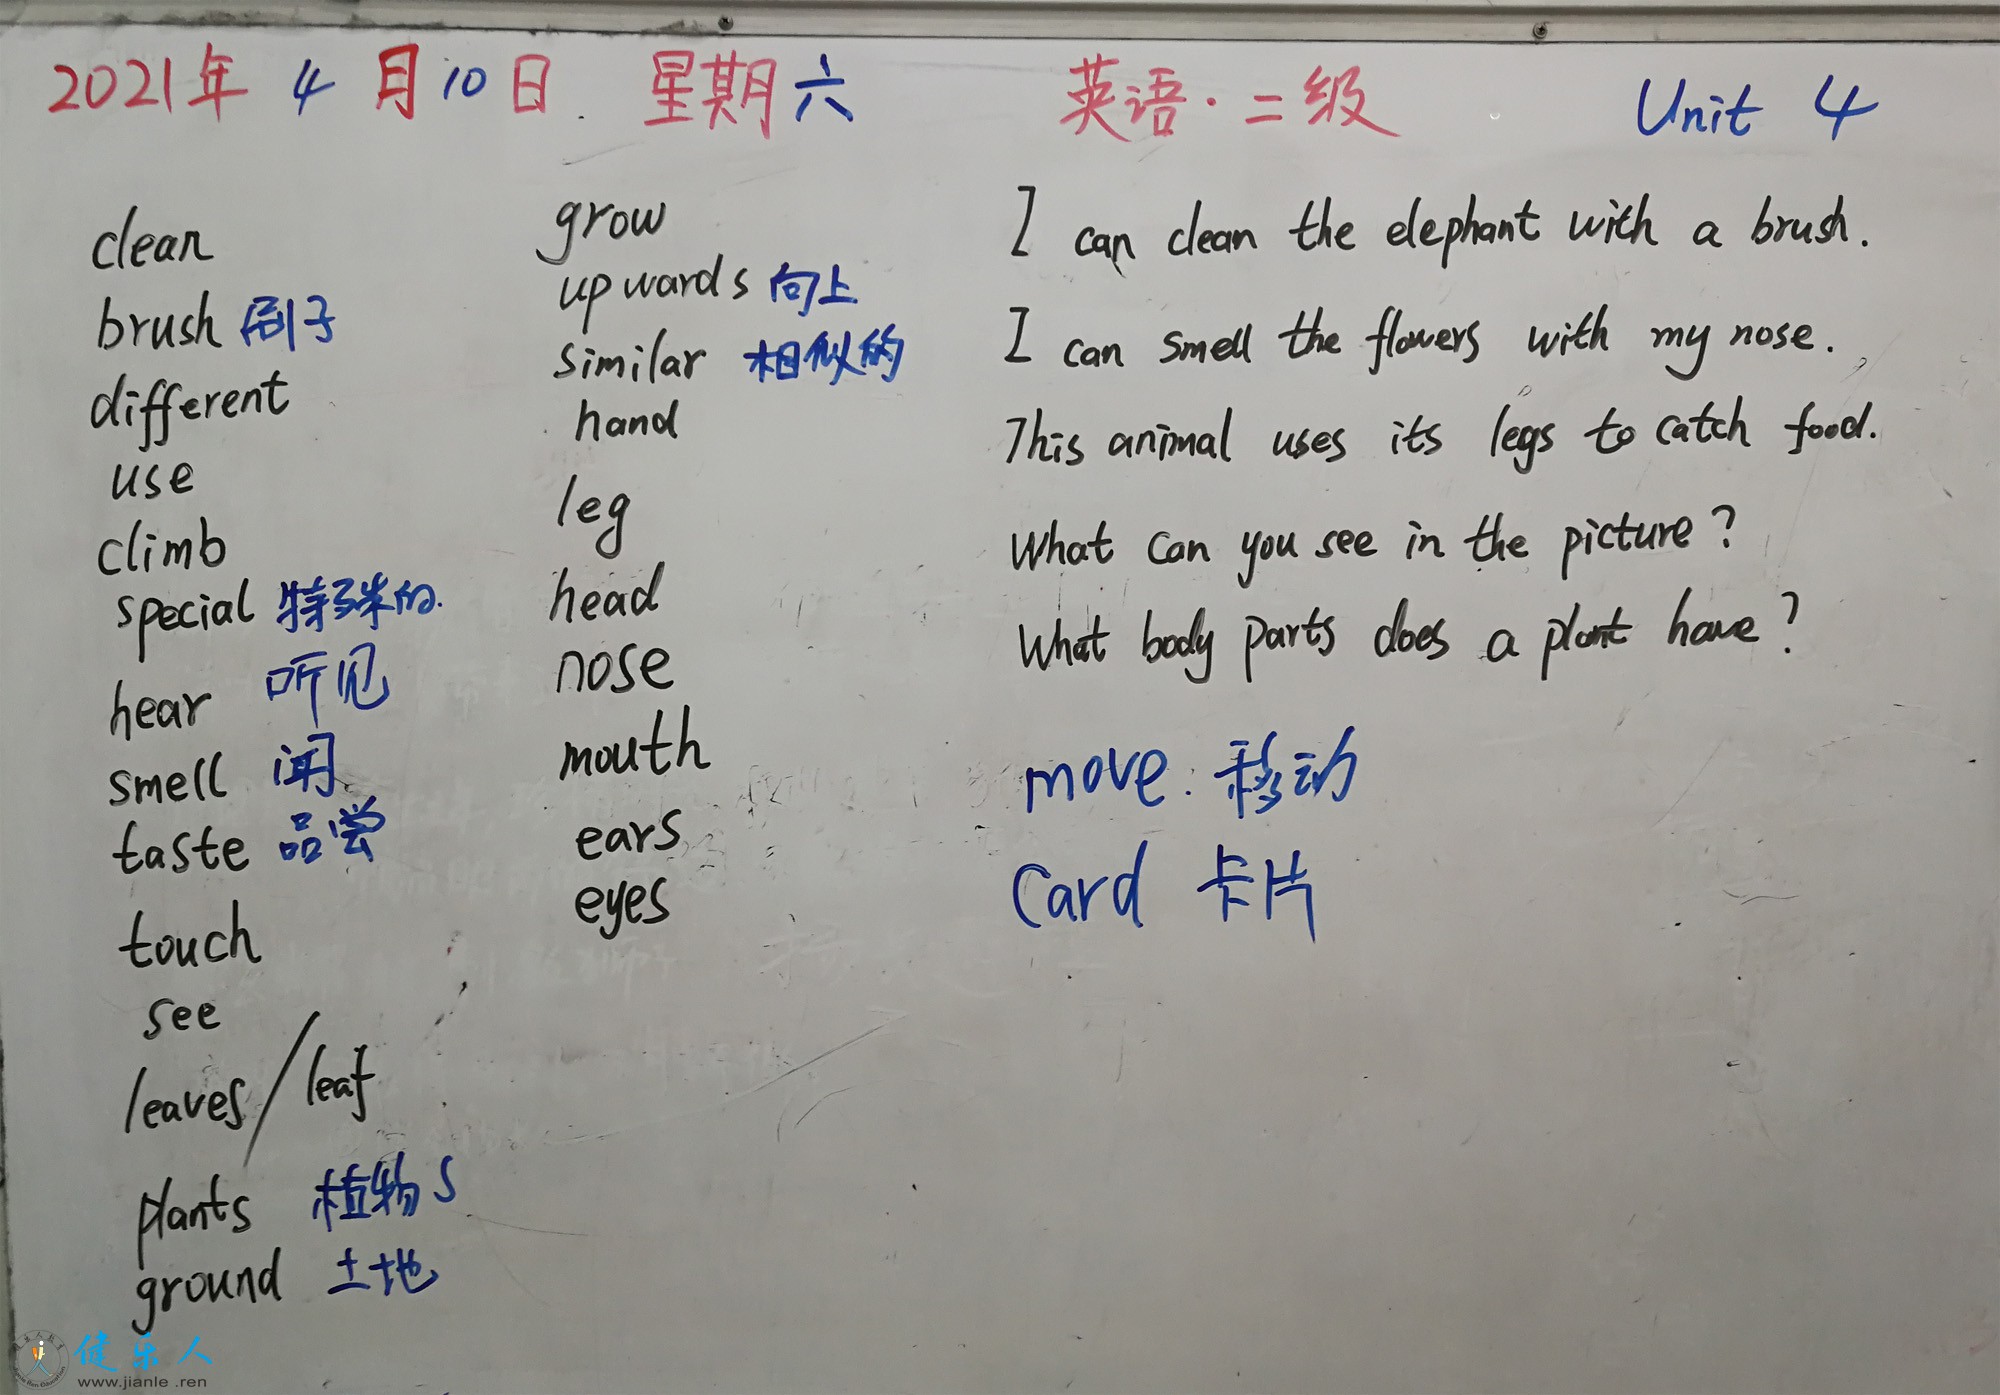 2021年 4月10日 星期六 英语·二级 Unit 4
clean
brush 刷子
different
use
climb
special 特殊的
hear 听见
smell 闻
taste 品尝
touch
see
leaves / leaf
plants 植物 s
ground 土地
grow
upwards 向上
similar 相似的
hand
leg
head
nose
mouth
ears
eyes
I can clean the elephant with a brush.
I can smell the flowers with my nose.
This animal uses its legs to catch food.
What can you see in the picture?
What body parts does a plant have?
move 移动
Card 卡片
健乐人
www.jianle.ren